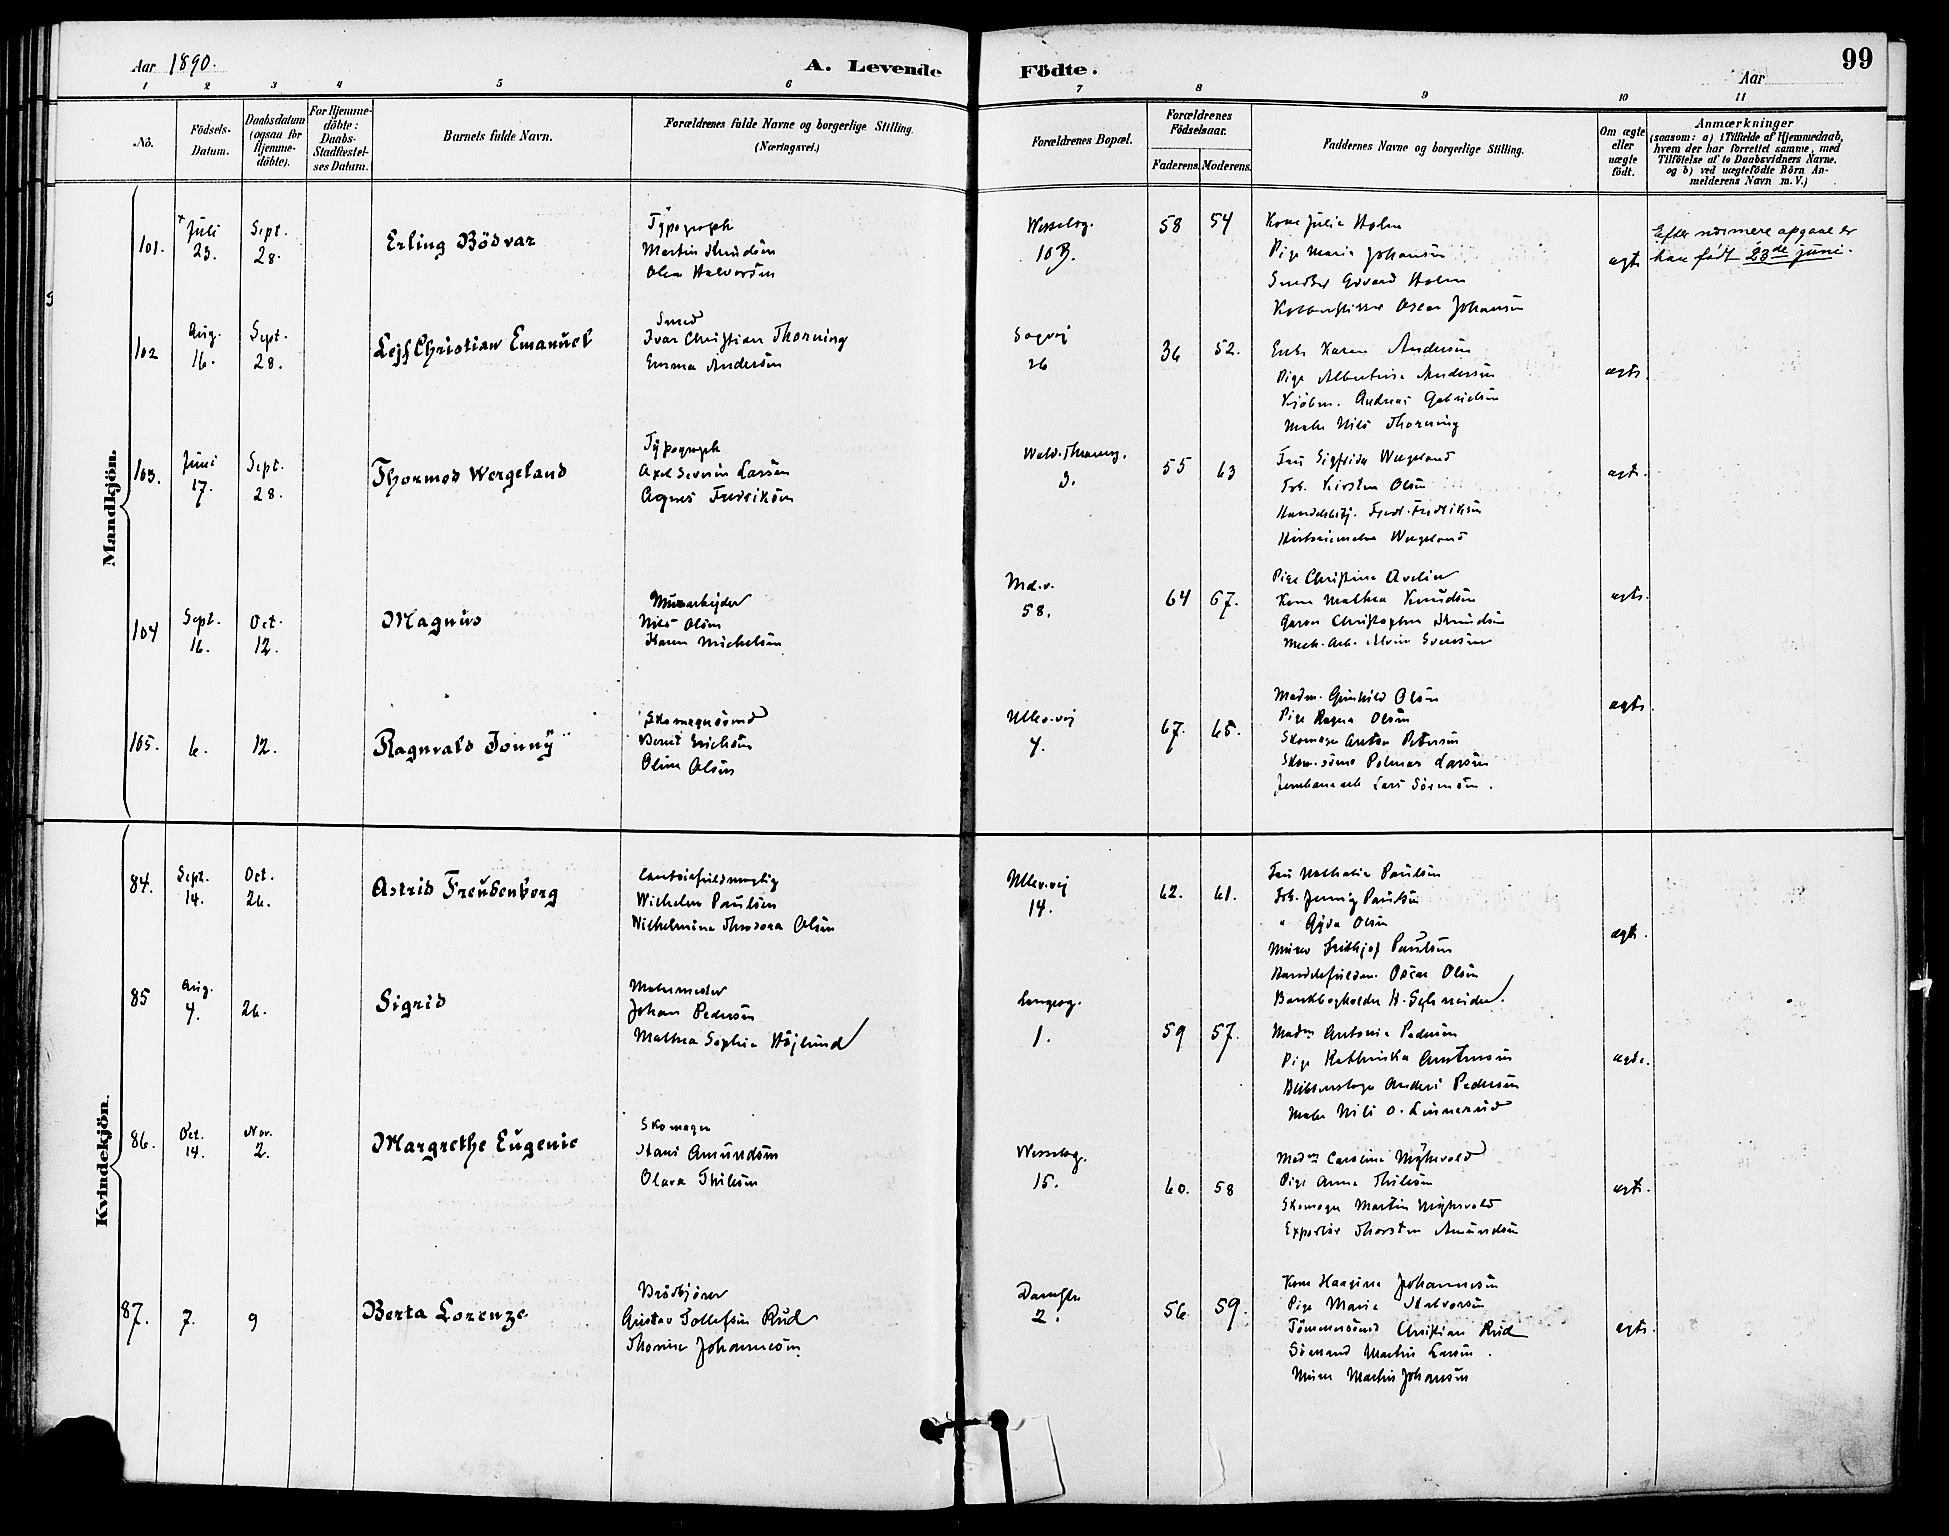 Aar 1890.
A. Levende Födte.
Aar
99
1 2 3 4 5 6 7 8 9 10 11
No.
Födsels-Datum.
Daabsdatum (ogsaa for Hjemme-döbte).
For Hjemme-döbte: Daabs-Stadfæstel-ses Datum.
Barnets fulde Navn.
Forældrenes fulde Navne og borgerlige Stilling.
(Næringsvei.)
Forældrenes Bopæl.
Forældrenes Födselsaar.
Faderens. Moderens.
Faddernes Navne og borgerlige Stilling.
Om ægte eller uægte født.
Anmærkninger
(saasom: a) i Tilfælde af Hjemmedaab, hvem der har forrettet samme, med Tilföielse af to Daabsvidners Navne, og b) ved uægtefödte Börn An-melderens Navn m. V.)
Mandkjön.
101. Juli 23. Sept. 28. Erling Bödvar
Typograph
Martin Knudsen
Olea Halvorsen
Wesselsg. 10B. 58 54
Kone Julie Holm
Pige Marie Johansen
Snedker Edvard Holm
Oscar Johansen
ægte
Efter nærmere opgave er
han født 23de juni.
102 Aug. 16. Sept. 28. Lejf Christian Emanuel
Smed
Ivar Christian Thorning
Emma Andersen
Sagvej 26 36 52.
Enke Karen Andersen
Pige Albertine Andersen
Kjøbm. Andreas Gabrielsen
Maler Nils Thorning
ægte.
103. Juni 17. Sept. 28. Thormod Wergeland
Typograph
Axel Severin Larsen
Agnes Fredriksen
Wald. Thranesg. 3. 55 63
Fru Sigfrida Wergeland
Frk. Kirsten Olsen
Fredr. Fredriksen
Historiemaler Wergeland
ægte.
104 Sept. 16. Oct. 12. Magnus
Murarbejder
Nils Olsen
Karen Michelsen
Md.v. 58. 64 67.
Pige Christine Avelin
Kone Mathea Knudsen
Garver Christopher Knudsen
Mech. Arb. Alvin Svensen
ægte.
105. 6. 12. Ragnvald Jonny
Skomagersvend
Bernt Erichsen
Oline Olsen
Ullev.vej 4. 67. 65.
Madm. Gunhild Olsen
Pige Ragna Olsen
Skomager Anton Petersen
Skom.svend Larsen
Jernbanearb Lars Sørensen.
ægte.
Kvindekjön.
84. Sept. 14. Oct. 26. Astrid Freudenborg
Contoirfuldmægtig
Wilhelm Paulsen
Wilhelmine Theodora Olsen
Ullev.vej 14. 62. 61.
Fru Nathalie Paulsen
Frk. Jenny Paulsen
" Gyda Olsen
Murer Fridthjof Paulsen
Handelsfuldm. Oscar Olsen
Bankbogholder H. Schneider.
ægte.
85 Aug. 4. 26. Sigrid
Malermester
Johan Pedersen
Mathea Sophie Höjlund
Langesg. 1. 59 57.
Madm Antonie Pedersen
Pige Kathinka Amundsen
Blikkenslager Anders Pedersen
Maler Nils O. Linnerud
ægte.
86. Oct. 14. Nov. 2. Margrethe Eugenie
Skomager
Hans Amundsen
Olava Thilesen
Wesselsg. 15. 60. 58
Madm Caroline Myhrvold
Pige Anna Thilesen
Skomager Martin Myhrvold
Expeditør Thorsten Amundsen
ægte.
87. 7. 9 Berta Lorenze
Brødkjører
Gustav Tollefsen Rud
Thorine Johannesen
Damstr. 2. 56 59.
Kone Haagine Johannesen
Pige Marie Halvorsen
Tömmersvend Christian Rud
Sömand Martin Larsen.
Murer Martin Johansen
ægte.